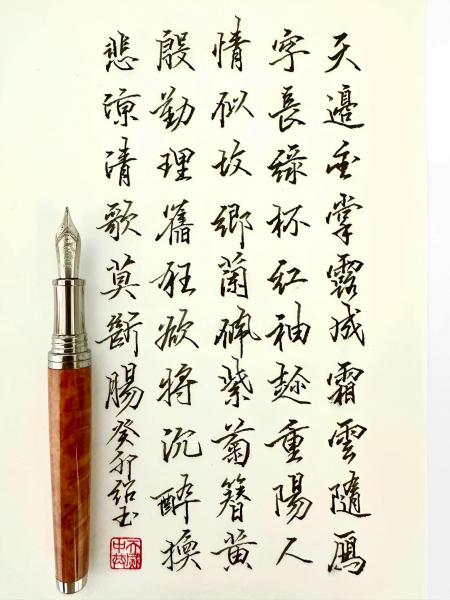 天邊金掌露成霜雲隨鴈
字長綠杯紅袖趁重陽人
情似故鄉蘭佩紫菊簪黃
殷勤理舊狂欲將沉醉換
悲涼清歌莫斷腸癸卯紹玉